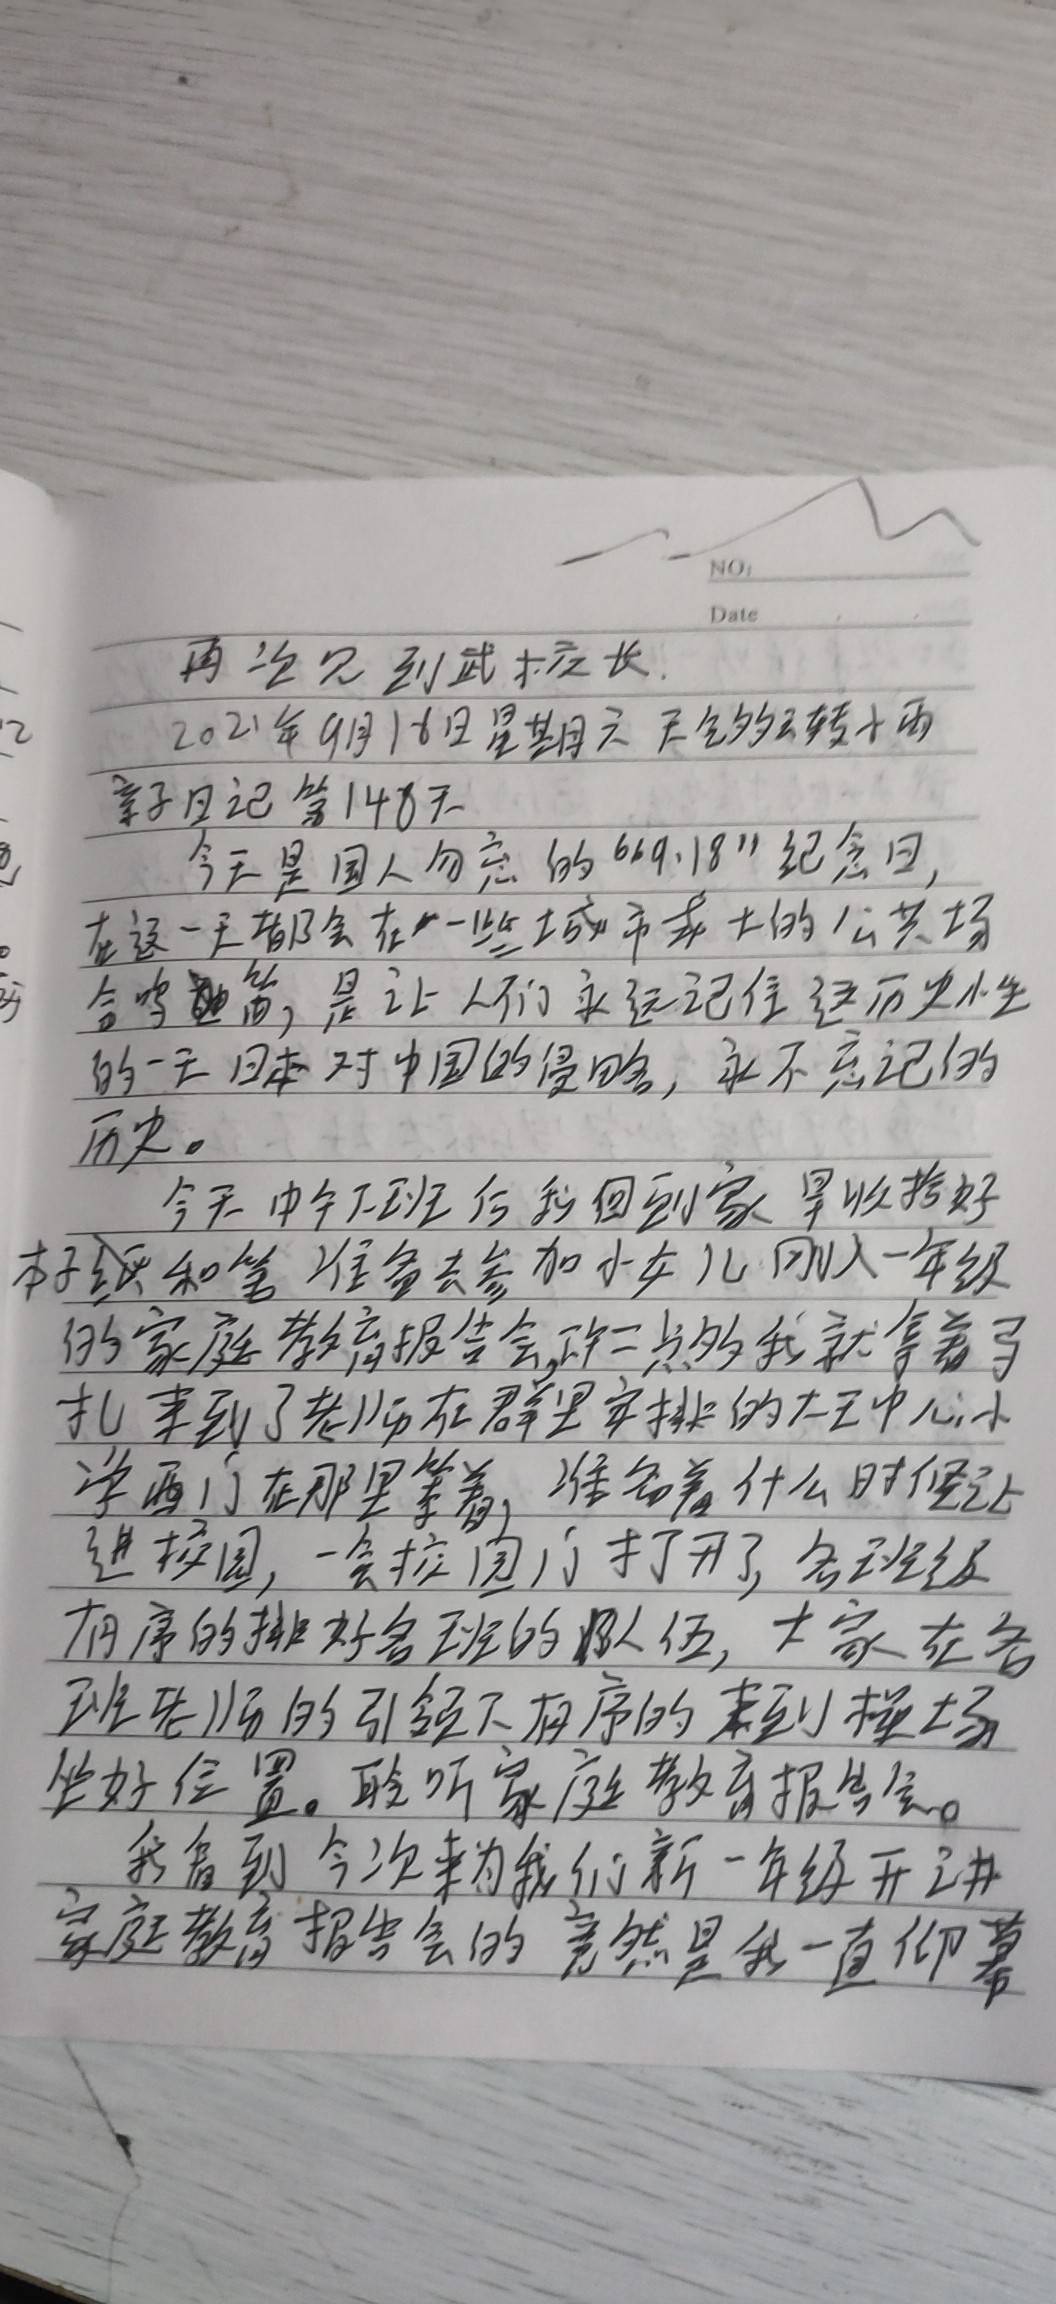 NO:
Date
再次见到武校长.
2021年9月18日星期六 天气多云转小雨
亲子日记第148天
今天是国人勿忘的“9.18”纪念日,
在这一天都会在一些城市或大的公共场
合鸣笛,是让人们永远记住这历史发生
的一天日本对中国的侵略,永不忘记的
历史。
今天中午下班后我回到家早收拾好
本子纸和笔准备去参加小女儿刚入一年级
的家庭教育报告会,许二点多我就拿着马
扎来到了老师在群里安排的大王中心小
学西门在那里等着,准备着什么时候让
进校园,一会校园门打开了,各班级
有序的排好各班的队伍,大家在各
班老师的引领下有序的来到操场
坐好位置。聆听家庭教育报告会。
我看到今次来为我们新一年级开讲
家庭教育报告会的竟然是我一直仰慕